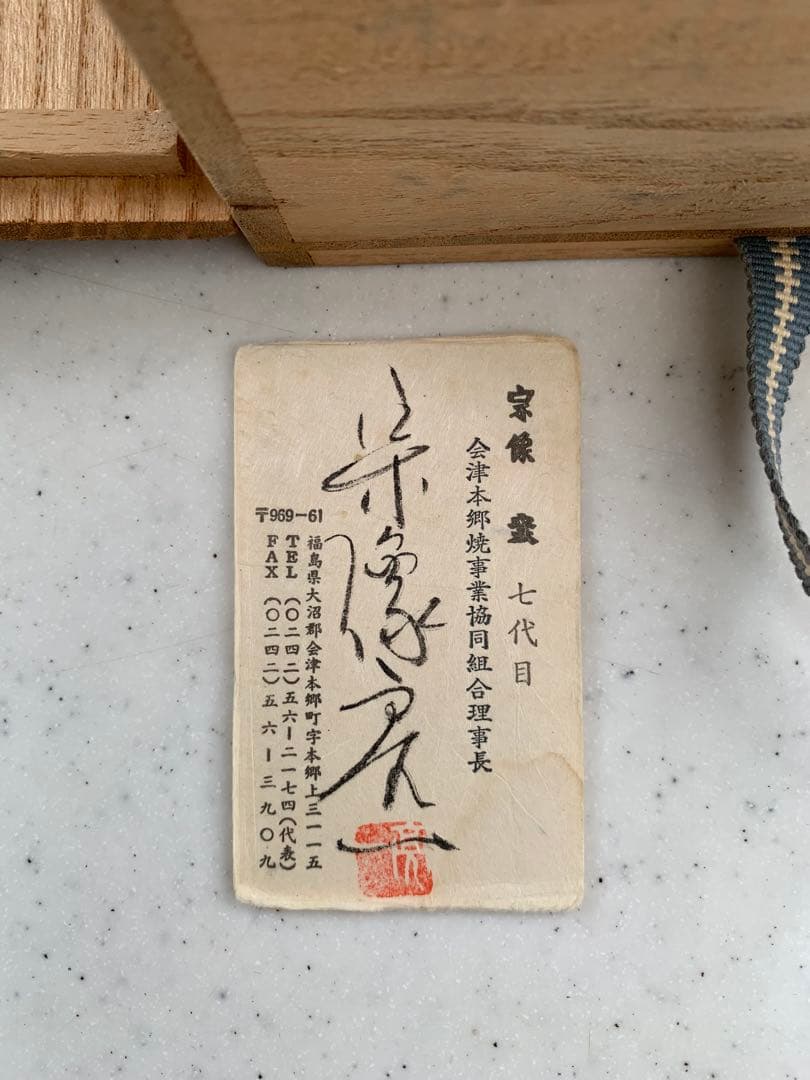 宗像 窯 七代目
会津本郷焼事業協同組合理事長
宗像亮一
亮
〒969-61
福島県大沼郡会津本郷町字本郷上三一一五
TEL (〇二四二)五六ー二一七四(代表)
FAX (〇二四二)五六ー三九〇九